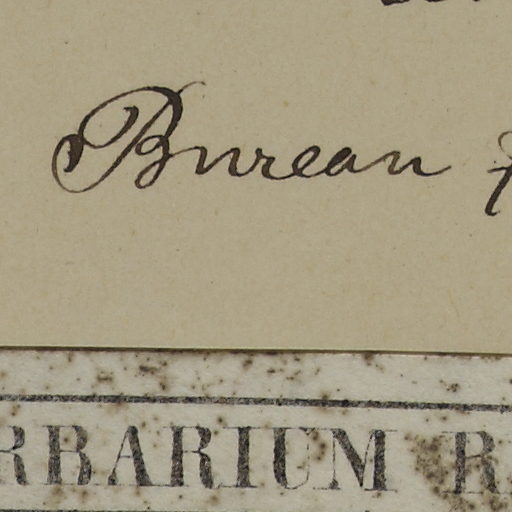 Bureau
RBARIUM R